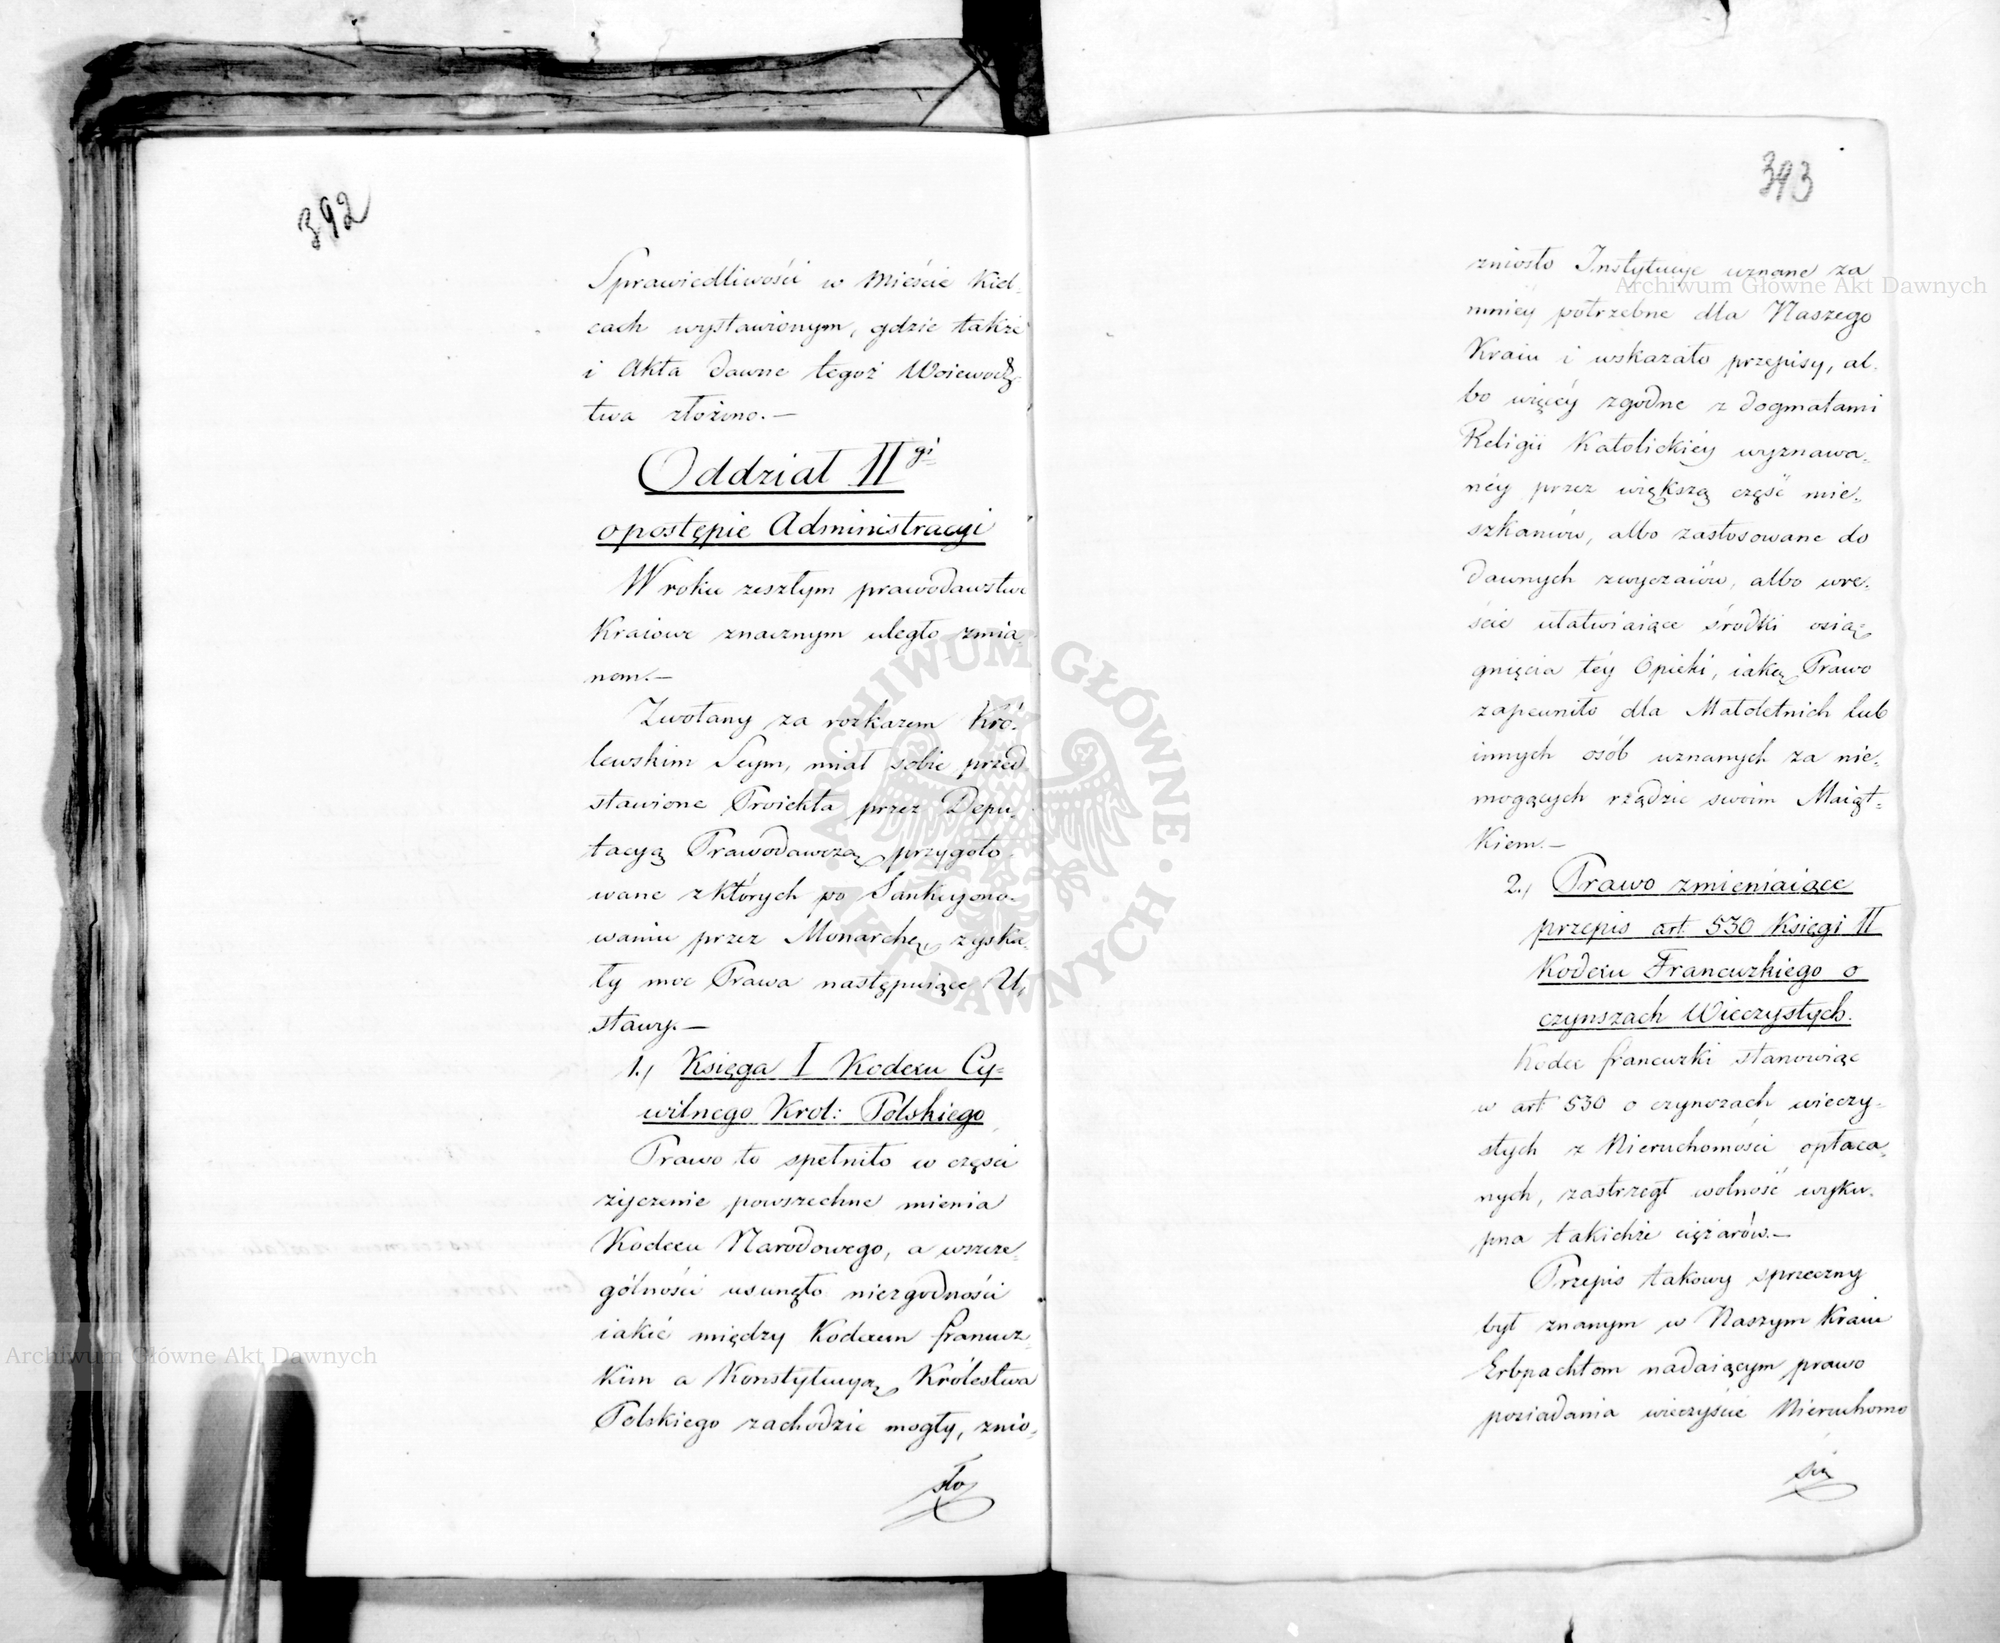 392
Sprawiedliwości w Mieście Kiel-
cach wystawionym, gdzie także
i Akta dawne tegoż Woiewodz-
twa złożono.—
Oddział II gi
o postępie Administracyi
W roku zeszłym prawodawstwo
Kraiowe znacznym uległo zmia-
nom.—
Zwołany za rozkazem Kró-
lewskim Seym, miał sobie przed
stawione Proiekta przez Depu-
tacyą Prawodawczą przygoto-
wane z których po Sankcyono-
waniu przez Monarchę zyska-
ły moc Prawa następuiące U-
stawy.—
1., Księga I Kodexu Cy-
wilnego Krol: Polskiego
Prawo to spełniło w części
życzenie powszechne mienia
Kodexu Narodowego, a wszcze-
gólności usunęło niezgodności
iakie między Kodexem francuz-
kim a Konstytucyą Królestwa
Polskiego zachodzić mogły, znio-
sło
393
zniosło Instytucye uznane za
mniéy potrzebne dla Naszego
Kraiu i wskazało przepisy, al-
bo więcéy zgodne z dogmatami
Religii Katolickiéy wyznawa-
néy przez większą część mie-
szkańców, albo zastosowane do
dawnych zwyczaiów, albo wre-
ście ułatwiaiące środki osią-
gnięcia téy Opieki, iaką Prawo
zapewniło dla Małoletnich lub
innych osób uznanych za nie-
mogących rządzić swoim Maiąt-
kiem.—
2., Prawo zmieniaiące
przepis art. 530 Księgi II
Kodexu Francuzkiego o
czynszach Wieczystych.
Kodex francuzki stanowiąc
w art 530 o czynszach wieczy-
stych z Nieruchomości opłaca-
nych, zastrzegł wolność wyku-
pna takichże ciężarów.—
Przepis takowy sprzeczny
był znanym w Naszym Kraiu
Erbpachtom nadaiącym prawo
posiadania wieczyście Nieruchomo
ści
Archiwum Główne Akt Dawnych
Archiwum Główne Akt Dawnych
ARCHIWUM GŁÓWNE · AKT DAWNYCH ·